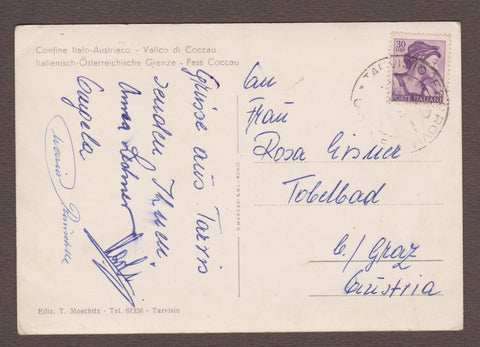 Confine Italo-Austriaco - Valico di Coccau
Italienisch-Österreichische Grenze - Pass Coccau
Grüsse aus Tarvis
senden Ihnen
Anna
Angela
Maria
Ediz. T. Moschitz - Tel. 61356 - Tarvisio
30
LIRE
POSTE ITALIANE
TARVISIO
FERROVIA
An
Frau
Rosa Eisner
Tobelbad
b/ Graz
Austria